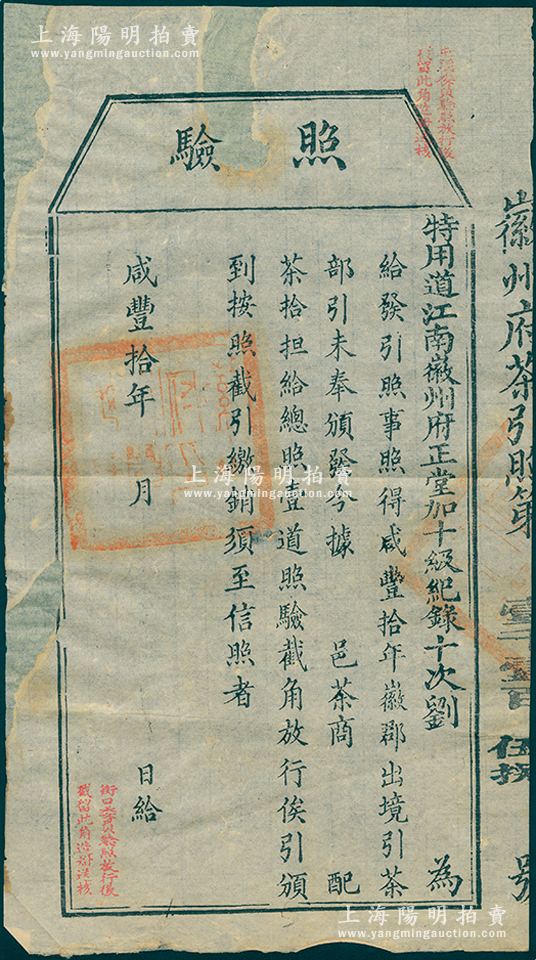 上海陽明拍賣
www.yangmingauction.com
徽州府茶引照第 壹千壹百伍拾 號
照驗
特用道江南徽州府正堂加十級紀錄十次劉 為
給發引照事照得咸豐拾年徽郡出境引茶
部引未奉頒發今據 邑茶商 配
茶拾担給總照壹道照驗截角放行俟引頒
到按照截引繳銷須至信照者
咸豐拾年 月 日給
街口委員驗照放行後
截留此角造册送核
委員驗照放行後
截留此角造册送核
上海陽明拍賣
www.yangmingauction.com
上海陽明拍賣
www.yangmingauction.com